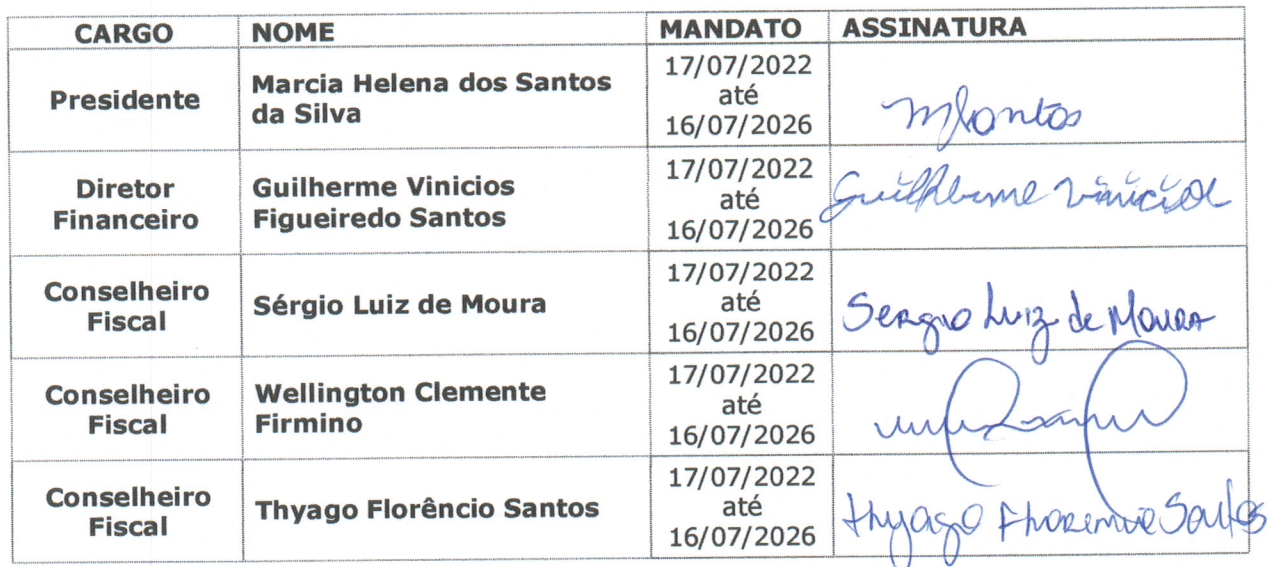 CARGO NOME MANDATO ASSINATURA
Presidente
Marcia Helena dos Santos
da Silva
17/07/2022
até
16/07/2026
Diretor
Financeiro
Guilherme Vinicios
Figueiredo Santos
17/07/2022
até
16/07/2026
Guilherme Vinicios
Conselheiro
Fiscal
Sérgio Luiz de Moura
17/07/2022
até
16/07/2026
Sergio Luiz de Moura
Conselheiro
Fiscal
Wellington Clemente
Firmino
17/07/2022
até
16/07/2026
Conselheiro
Fiscal
Thyago Florêncio Santos
17/07/2022
até
16/07/2026
Thyago Santos